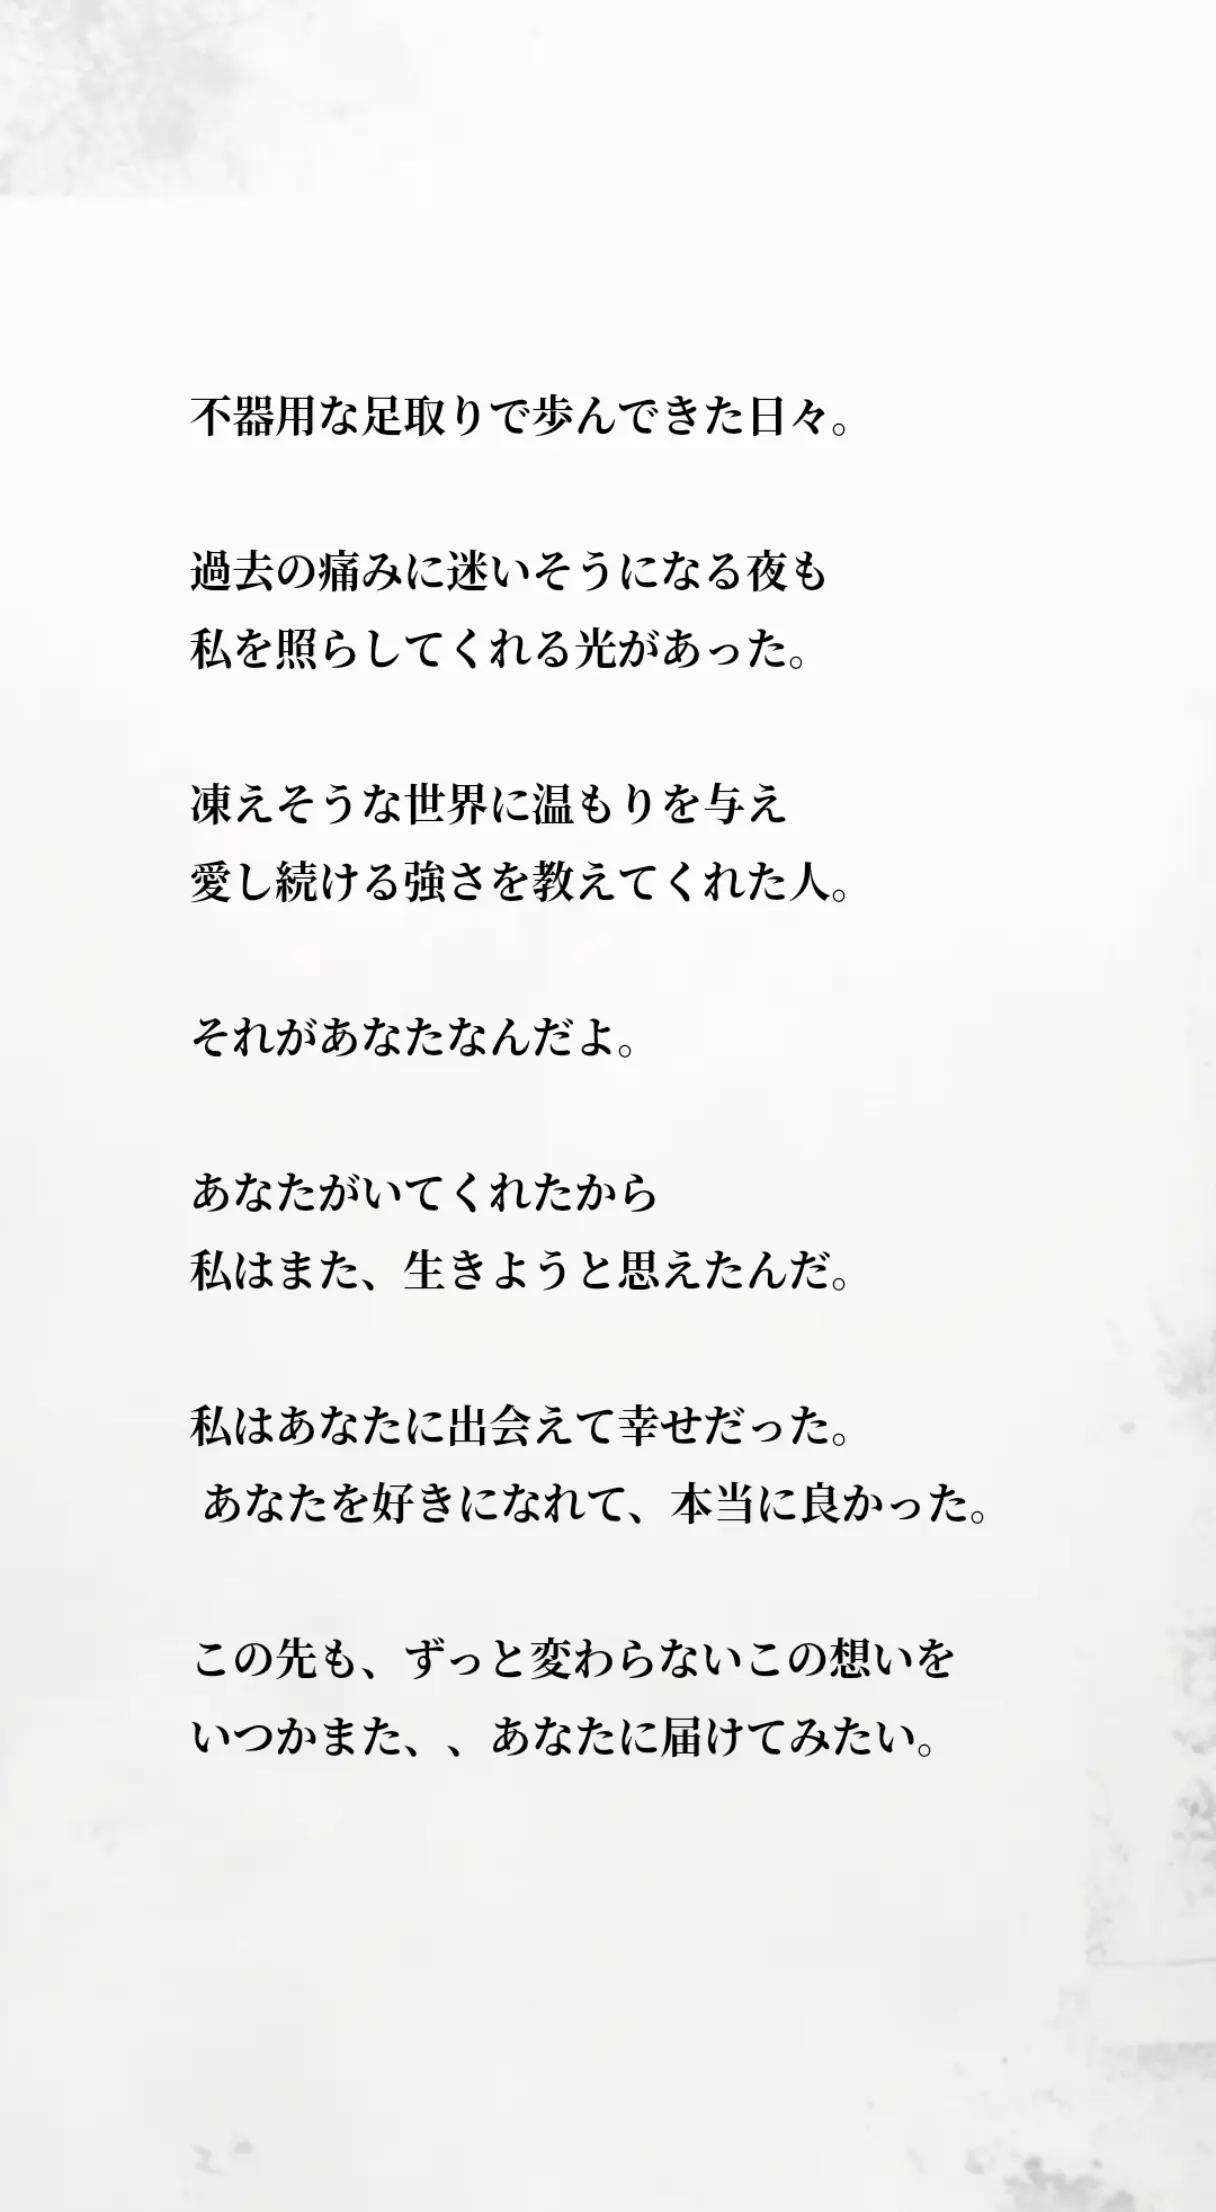 不器用な足取りで歩んできた日々。
過去の痛みに迷いそうになる夜も
私を照らしてくれる光があった。
凍えそうな世界に温もりを与え
愛し続ける強さを教えてくれた人。
それがあなたなんだよ。
あなたがいてくれたから
私はまた、生きようと思えたんだ。
私はあなたに出会えて幸せだった。
あなたを好きになれて、本当に良かった。
この先も、ずっと変わらないこの想いを
いつかまた、、あなたに届けてみたい。